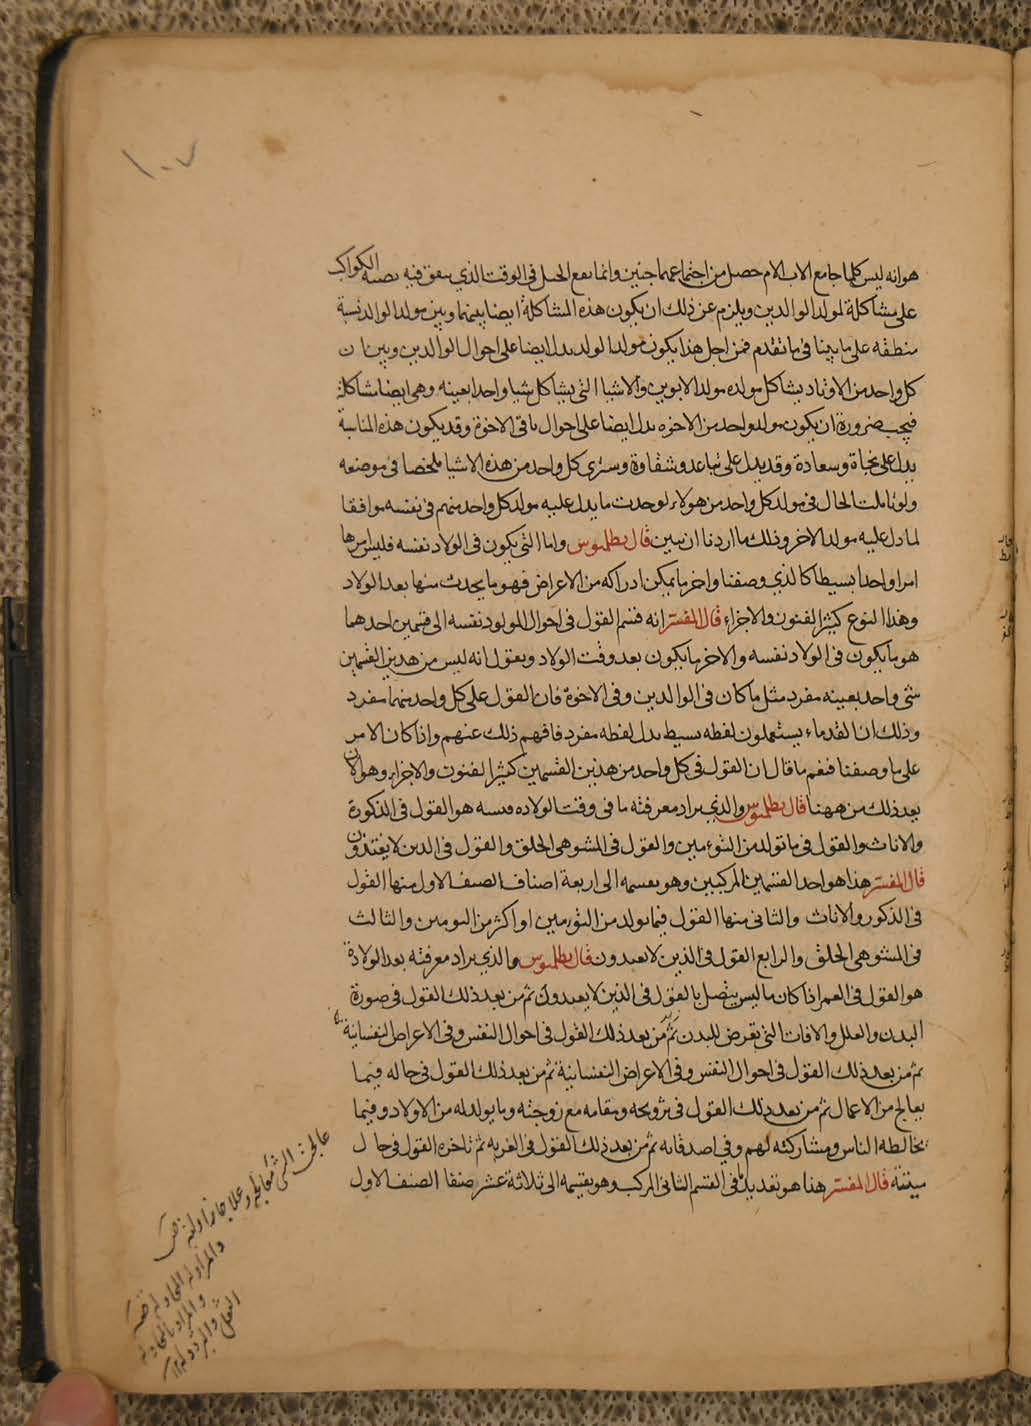 ١٠٧
هو انه ليس كلما جامع الاب الام حصل من اجتماعهما جنين وانما يقع الحبل في الوقت الذي يتفق فيه نصبه الكواكب
على مشاكلة لمولد الوالدين ويلزم عن ذلك ان يكون هذه المشاكلة ايضا بينها وبين مولد الوالد نسبة
منطقه على ما بينا في ما تقدم فمن اجل هذا يكون مولد الولد يدل ايضا على احوال الوالدين وبين ان
كل واحد من الاولاد يشاكل مولده مولد الابوين والاشيا التي يشاكل شيا واحدا بعينه وهي ايضا مشاكلة
فيجب ضرورة ان يكون مولد واحد من الاخوه يدل ايضا على احوال باقي الاخوة وقد يكون هذه المناسبة
يدل على نجاة وسعادة وقد يدل على تباعد وشقاوة وسترى كل واحد من هذه الاشيا ملخصا في موضعه
ولو تاملت الحال في مولد كل واحد من هولاء لوجدت ما يدل عليه مولد كل واحد منهم في نفسه موافقا
لما دل عليه مولد الاخر وذلك ما اردنا ان نبين قال بطلميوس واما التي يكون في الولاد نفسه فليس امرها
امرا واحدا بسيطا كالذي وصفنا واخر ما يمكن ادراكه من الاعراض فهو ما يحدث منها بعد الولاد
وهذا النوع كثير الفنون والاجزاء قال المفسر انه قسم القول في احوال المولود نفسه الى قسمين احدهما
هو ما يكون في الولاد نفسه والاخر ما يكون بعد وقت الولاد ويقول انه ليس من هذين القسمين
شي واحد بعينه مفرد مثل ما كان في الوالدين وفي الاخوة فان القول على كل واحد منهما مفرد
وذلك ان القدماء يستعملون لفظه بسيط بدل لفظه مفرد فافهم ذلك عنهم واذا كان الامر
على ما وصفنا فنعم ما قال ان القول في كل واحد من هذين القسمين كثير الفنون والاجزاء وهو الان
يعد ذلك من ههنا قال بطلميوس والذي يراد معرفته ما في وقت الولاده نفسه هو القول في الذكورة
والاناث والقول في ما تولد من التوءمين والقول في المشوهي الخلق والقول في الذين لا يغتذون
قال المفسر هذا هو احد القسمين المركبين وهو يقسمه الى اربعة اصناف الصنف الاول منها القول
في الذكور والاناث والثاني منها القول فيما تولد من التوءمين او اكثر من التومين والثالث
في المشوهي الخلق والرابع القول في الذين لا يغتدون قال بطلميوس والذي يراد معرفته بعد الولادة
هو القول في العمر اذا كان ما ليس يتصل بالقول في الذين لا يغتدون ثم من بعد ذلك القول في صورة
البدن والعلل والافات التي تعرض للبدن ثم من بعد ذلك القول في احوال النفس وفي الاعراض النفسانية
ثم من بعد ذلك القول في احوال النفس وفي الاعراض النفسانية ثم من بعد ذلك القول في حاله فيما
يعالج من الاعمال ثم من بعد ذلك القول في تزويجه ومقامه مع زوجته وما يولد له من الاولاد وفيما
يخالطه الناس ومشاركته لهم وفي اصدقائه ثم من بعد ذلك القول في الغربه ثم تاخره القول في حال
ميتته قال المفسر هذا هو تعديل ما في القسم الثاني المركب وهو يقسمه الى ثلاثة عشر صنفا الصنف الاول
عالجت الشي معالجة وعلاجا زاولته